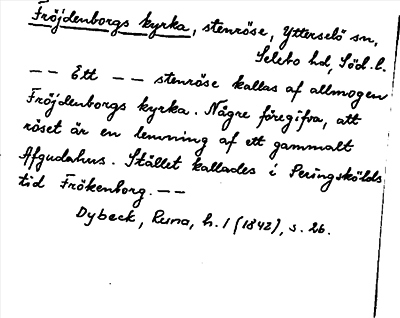 Fröjdenborgs kyrka, stenröse, Ytterselö sn,
Selebo hd, Söd. l.
-- Ett -- stenröse kallas af allmogen
Fröjdenborgs kyrka. Någre föregifva, att
röset är en lemning af ett gammalt
Afgudahus. Stället kallades i Peringskölds
tid Frökenborg. --
Dybeck, Runa, h. 1 (1842), s. 26.